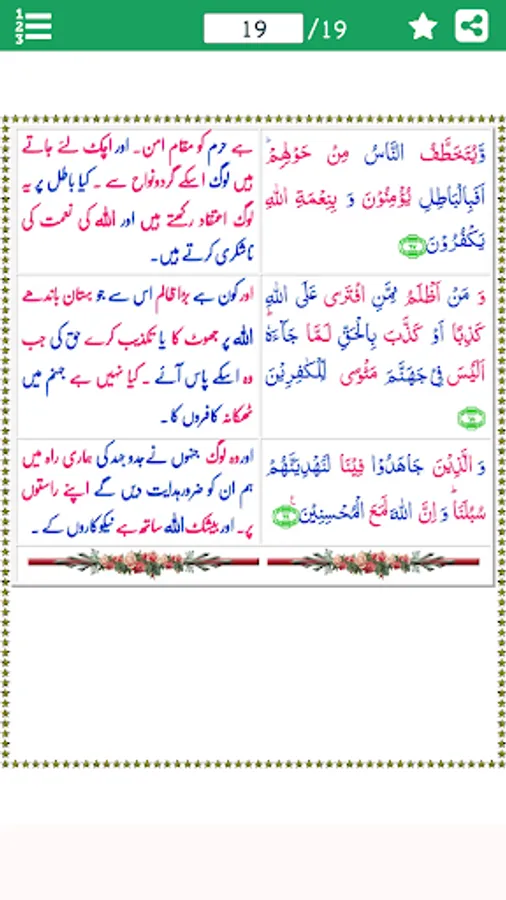 1
2
3
19 /19
وَّيُتَخَطَّفُ النَّاسُ مِنْ حَوْلِهِمْ ؕ
اَفَبِالْبَاطِلِ يُؤْمِنُوْنَ وَ بِنِعْمَةِ اللّٰهِ
يَكْفُرُوْنَ ﴿۶۷﴾
ہے حرم کو مقام امن۔ اور اچک لئے جاتے
ہیں لوگ اسکے گردونواح سے ۔ کیا باطل پر یہ
لوگ اعتقاد رکھتے ہیں اور اللہ کی نعمت کی
ناشکری کرتے ہیں۔
وَ مَنْ اَظْلَمُ مِمَّنِ افْتَرٰى عَلَى اللّٰهِ
كَذِبًا اَوْ كَذَّبَ بِالْحَقِّ لَمَّا جَآءَهٗ ؕ
اَلَيْسَ فِيْ جَهَنَّمَ مَثْوًى لِّلْكٰفِرِيْنَ
﴿۶۸﴾
اور کون ہے بڑا ظالم اس سے جو بہتان باندھے
اللہ پر جھوٹ کا یا تکذیب کرے حق کی جب
وہ اسکے پاس آئے ۔ کیا نہیں ہے جہنم میں
ٹھکانہ کافروں کا ۔
وَ الَّذِيْنَ جَاهَدُوْا فِيْنَا لَنَهْدِيَنَّهُمْ
سُبُلَنَا ؕ وَ اِنَّ اللّٰهَ لَمَعَ الْمُحْسِنِيْنَ ﴿۶۹﴾
اور وہ لوگ جنہوں نے جدوجہد کی ہماری راہ میں
ہم ان کو ضرور ہدایت دیں گے اپنے راستوں
پر۔ اور بیشک اللہ ساتھ ہے نیکوکاروں کے ۔